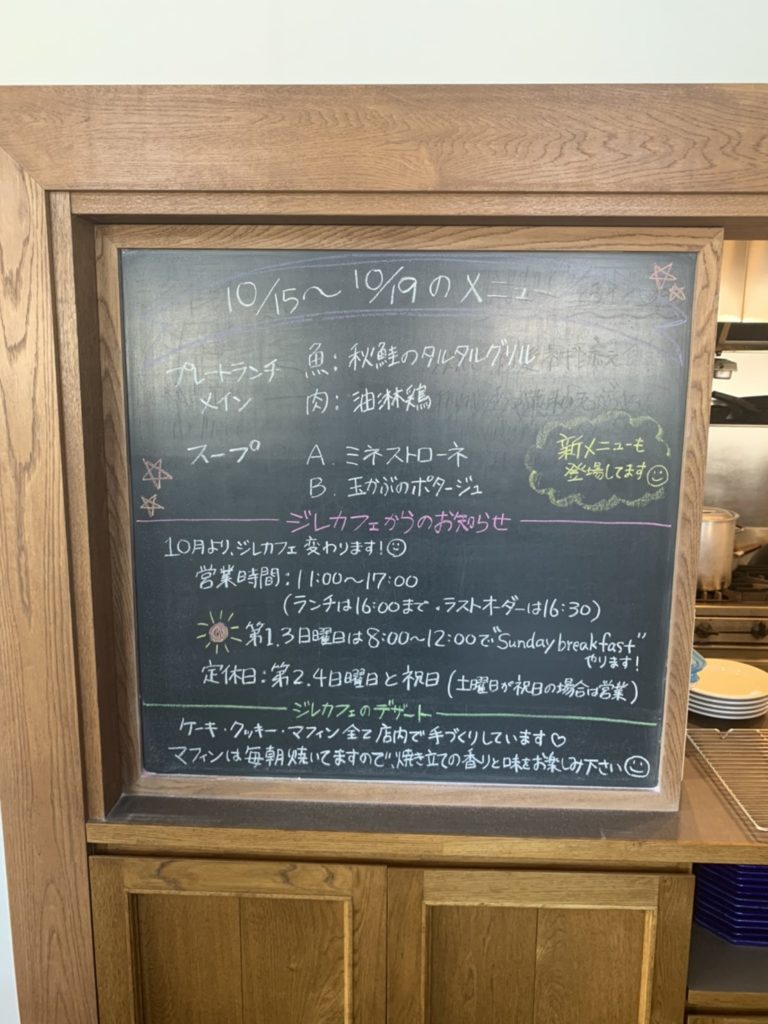 10/15～10/19のメニュー
プレートランチ 魚：秋鮭のタルタルグリル
メイン 肉：油淋鶏
スープ A. ミネストローネ
B. 玉かぶのポタージュ
新メニューも
登場してます
ジレカフェからのお知らせ
10月より、ジレカフェ変わります！
営業時間：11:00～17:00
（ランチは16:00まで・ラストオーダーは16:30）
第1.3日曜日は8:00～12:00で"Sunday breakfast"
やります！
定休日：第2.4日曜日と祝日（土曜日が祝日の場合は営業）
ジレカフェのデザート
ケーキ・クッキー・マフィン全て店内で手づくりしています♡
マフィンは毎朝焼いてますので、焼き立ての香りと味をお楽しみ下さい